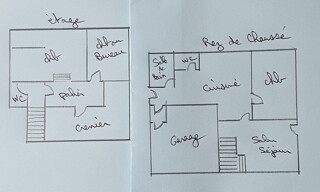 étage
chb
chb ou
Bureau
WC
palier
Grenier
Rez de Chaussé
Salle
de
Bain
WC
cuisine
chb
Garage
Salon
Séjour